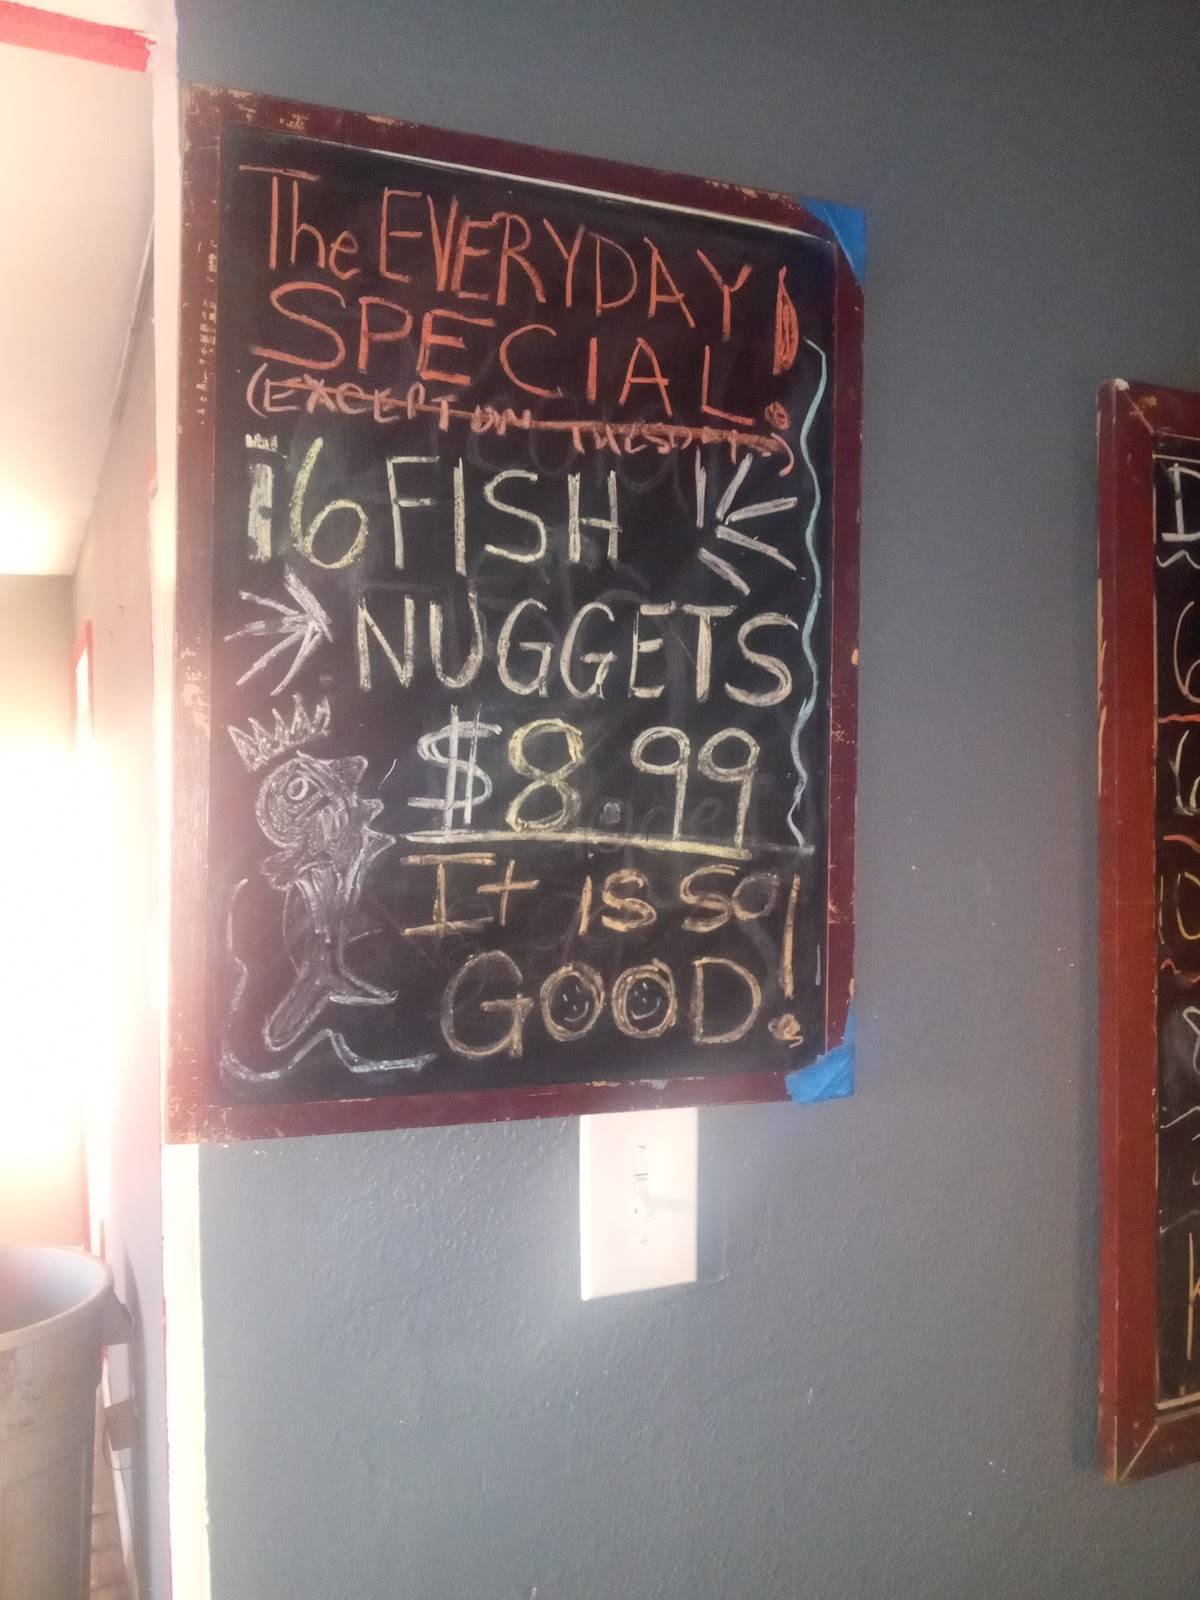 The EVERYDAY
SPECIAL!
(EXCEPT ON TUESDAYS)
16 FISH
NUGGETS
$8.99
It IS SO
GOOD!